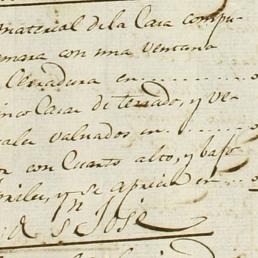 material de la Casa compu-
camara con una ventana
Cerradura en
inco Casas de terrado, y ve-
valuados en
con Cuarto alto, y bajo
y se aprecia en
de Sn. José